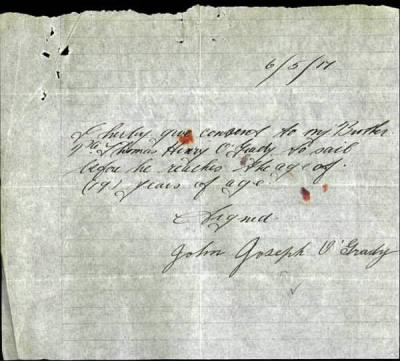 6/5/17
I herby give consend to my Brother
Pte Thomas Henry O'Grady to sail
before he reaches the age of
(19) years of age
Signed
John Joseph O'Grady